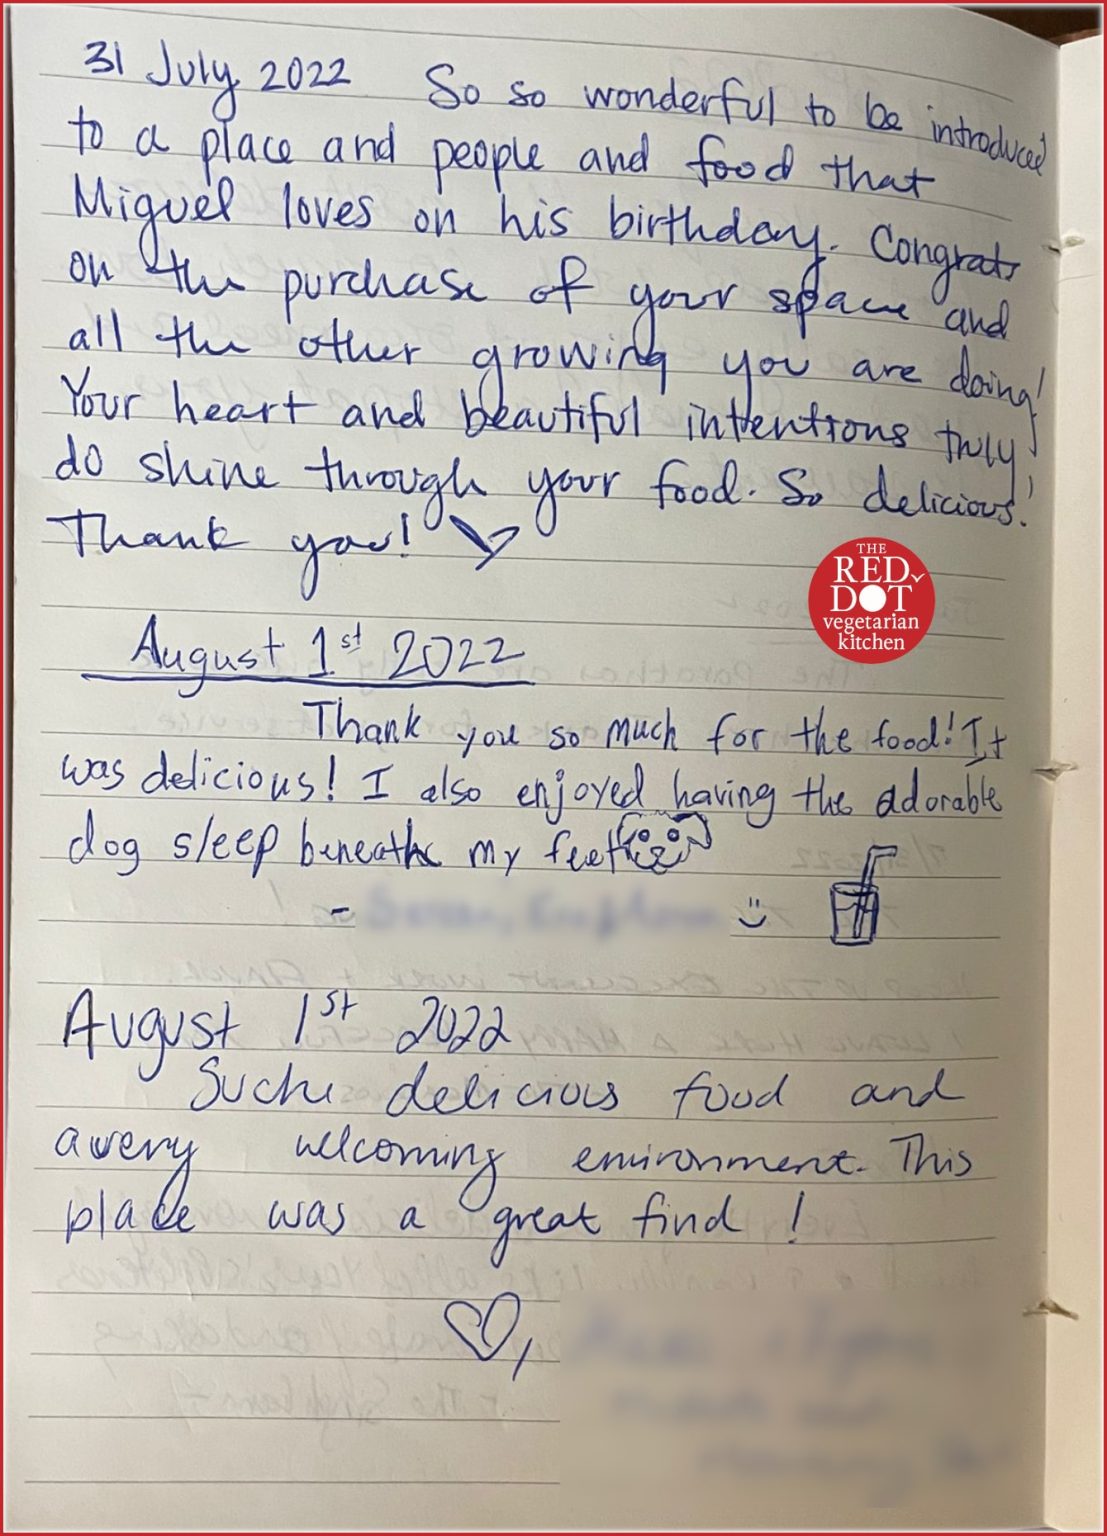 31 July 2022 So so wonderful to be introduced
to a place and people and food that
Miguel loves on his birthday. Congrats
on the purchase of your space and
all the other growing you are doing!
Your heart and beautiful intentions truly
do shine through your food. So delicious!
Thank you!
THE
RED
DOT
vegetarian
kitchen
August 1st 2022
Thank you so much for the food! It
was delicious! I also enjoyed having the adorable
dog sleep beneath my feet
-
August 1st 2022
Such delicious food and
a very welcoming environment. This
place was a great find!